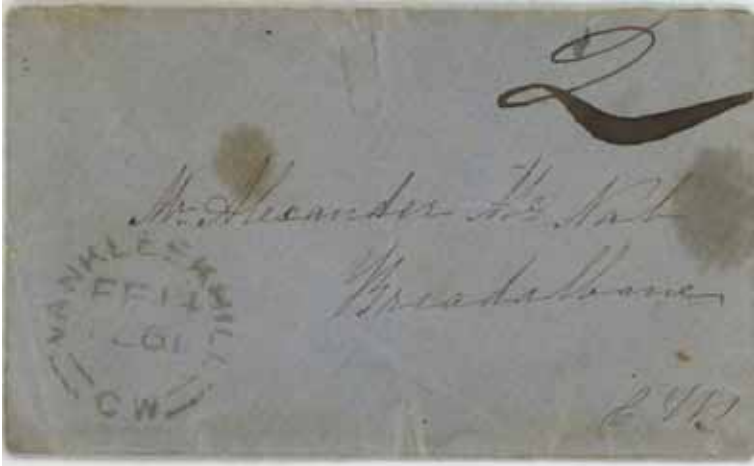 2
Mr. Alexander Mc Nab
Breadalbane
VANKLEEKHILL
FE 14
C.W.